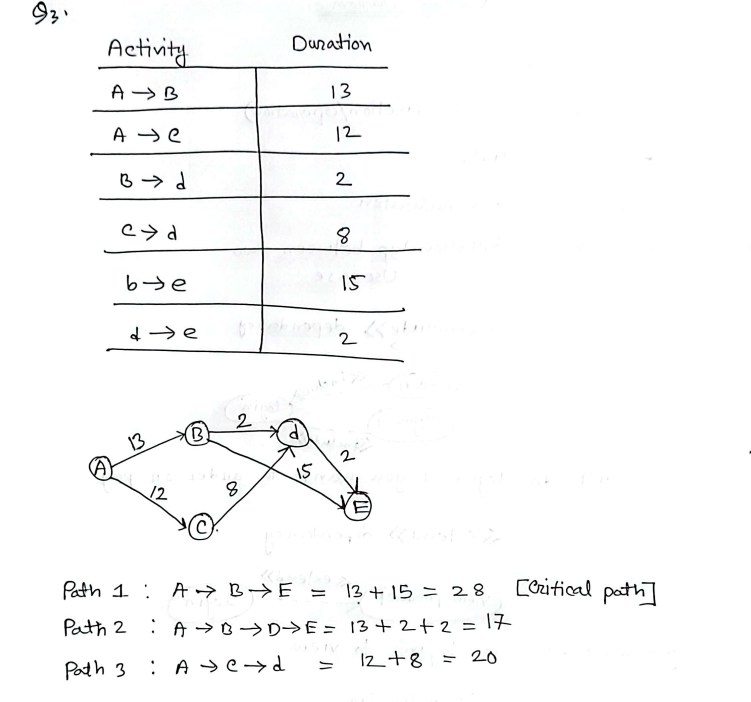 Q3.
Activity Duration
A → B 13
A → C 12
B → d 2
C → d 8
b → e 15
d → e 2
13 B 2 d
A 15 2
12 8
C E
Path 1 : A → B → E = 13 + 15 = 28 [Critical path]
Path 2 : A → B → D → E = 13 + 2 + 2 = 17
Path 3 : A → C → d = 12 + 8 = 20